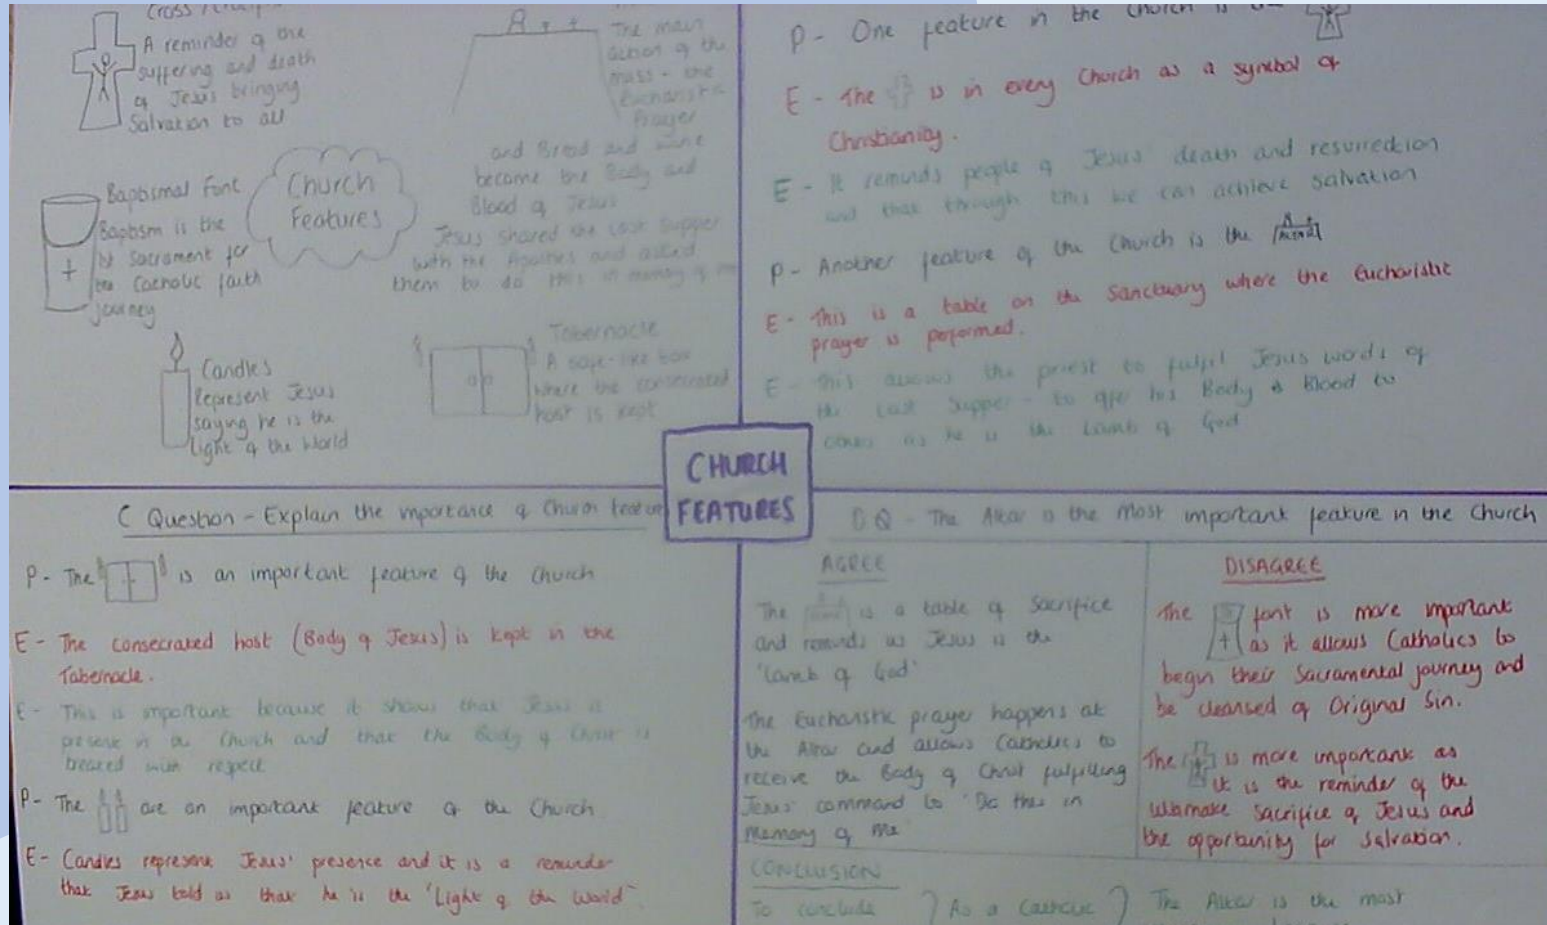 Cross /
A reminder of the
suffering and death
of Jesus bringing
Salvation to all
The main
action of the
mass - the
Eucharistic
Prayer
and Bread and wine
become the Body and
Blood of Jesus
Jesus shared the Last Supper
with the Apostles and asked
them to do this in memory of me
Church
Features
Baptismal Font
Baptism is the
1st Sacrament for
the Catholic faith
journey
Candles
Represent Jesus
saying he is the
light of the World
Tabernacle
A safe-like box
where the consecrated
host is kept
P - One feature in the Church is
E - The is in every Church as a symbol of
Christianity.
E - It reminds people of Jesus' death and resurrection
and that through this we can achieve salvation
P - Another feature of the Church is the
E - This is a table on the Sanctuary where the Eucharistic
prayer is performed.
E - This allows the priest to fulfil Jesus words of
the Last Supper - to offer his Body & Blood to
others as he is the Lamb of God
CHURCH
FEATURES
C Question - Explain the importance of Church feature
P - The is an important feature of the Church
E - The consecrated host (Body of Jesus) is kept in the
Tabernacle.
E - This is important because it shows that Jesus is
present in the Church and that the Body of Christ is
treated with respect
P - The are an important feature of the Church
E - Candles represent Jesus' presence and it is a reminder
that Jesus told us that he is the 'Light of the World'.
D.Q - The Altar is the most important feature in the Church
AGREE
The is a table of Sacrifice
and reminds us Jesus is the
'Lamb of God'
The Eucharistic prayer happens at
the Altar and allows Catholics to
receive the Body of Christ fulfilling
Jesus' command to 'Do this in
Memory of Me'
DISAGREE
The font is more important
as it allows Catholics to
begin their Sacramental journey and
be cleansed of Original Sin.
The is more important as
it is the reminder of the
ultimate sacrifice of Jesus and
the opportunity for salvation.
CONCLUSION
To conclude } As a Catholic } The Altar is the most